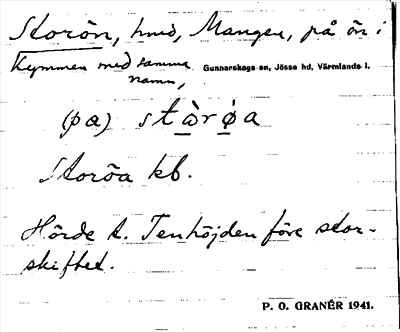 Storön, hmd, Mangen, på ön i
Kymmen med samma namn,
Gunnarskogs sn, Jösse hd, Värmlands l.
(pa) stàrøa
Storöa kb.
Hörde t. Tenhöjden före stor-
skiftet.
P. O. GRANÉR 1941.